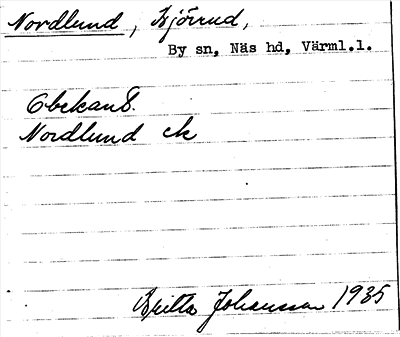 Nordlund, Björrud,
By sn, Näs hd, Värml.l.
Obekant.
Nordlund ck
Britta Johansson 1935